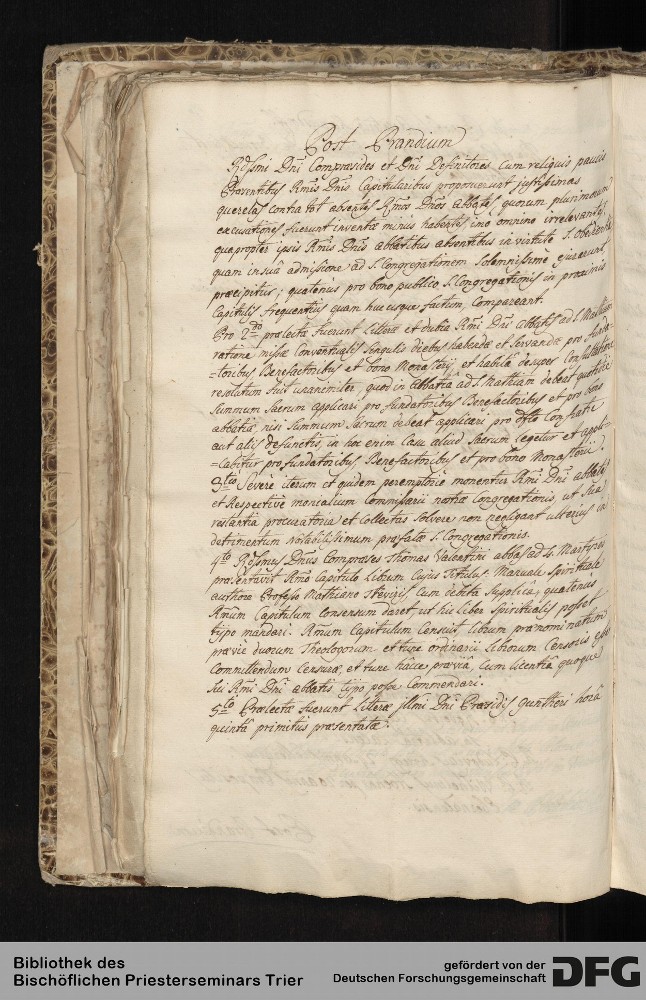 Post Prandium
Rdssmi Dni Compræsides et Dni Definitores cum reliquis paucis
Præsentibus Rmis Dnis Capitularibus proposuerunt justissimas
querelas contra tot absentes Rmos Dnos abbates quorum plurimorum
excusationes fuerunt inventæ minus habentes, imo omnino irrelevantes,
quapropter ipsis Rmis Dnis abbatibus absentibus in virtute S. Obedientiæ
quam in suâ admissione ad S. Congregationem Solemnissime ejurarunt
præcipitur; quatenus pro bono publico S. Congregationis in proximis
Capitulis frequentius quam huc usque factum, compareant.
Pro 2do prælectæ fuerunt Litteræ et dubia Rmi Dni abbatis ad S. Mathiam
ratione missæ Conventualis Singulis diebus habendæ et Servandæ pro funda-
=toribus Benefactoribus et bono Monasterij et habitâ desuper Consultatione
resolutum fuit unanimiter, quod in abbatia ad S. Mathiam debeat quotidie
Summum Sacrum applicari pro fundatoribus Benefactoribus et pro bono
abbatiæ, nisi Summum Sacrum debeat applicari pro dfto Confratre
aut aliis defunctis, in hoc enim Casu aliud Sacrum legetur et appli-
=cabitur pro fundatoribus, Benefactoribus et pro bono Monasterii.
3tio Severe iterum et quidem peremptorie monentur Rmi Dni abbates
et Respective monialium Commissarii nostræ Congregationis, ut Sua
restantia procuratoria et Collectas Solvere non negligant ulterius in
detrimentum notabilissimum præfatæ S. Congregationis.
4to Rdssmus Dnus Compræses Thomas Valentini abbas ad 4. Martyres
præsentavit Rmo Capitulo Librum Cujus Titulus: Manuale Spirituale
authore Professo Mathiano Stevigis, Cum debita Supplicâ, quatenus
Rmum Capitulum Consensum daret ut hic Liber Spiritualis posset
typo mandari. Rmum Capitulum Censuit, librum prænominatum
prævie duorum Theologorum et tunc ordinarii Librorum Censoris esse
Committendum Censuræ, et tunc hâcce præviâ, Cum licentiâ quoque
Sui Rmi Dni abbatis typo posse Commendari.
5to Prælectæ fuerunt Litteræ Illmi Dni Præsidis Guntheri horâ
quintâ primitus præsentatæ.
Bibliothek des
Bischöflichen Priesterseminars Trier
gefördert von der
Deutschen Forschungsgemeinschaft
DFG